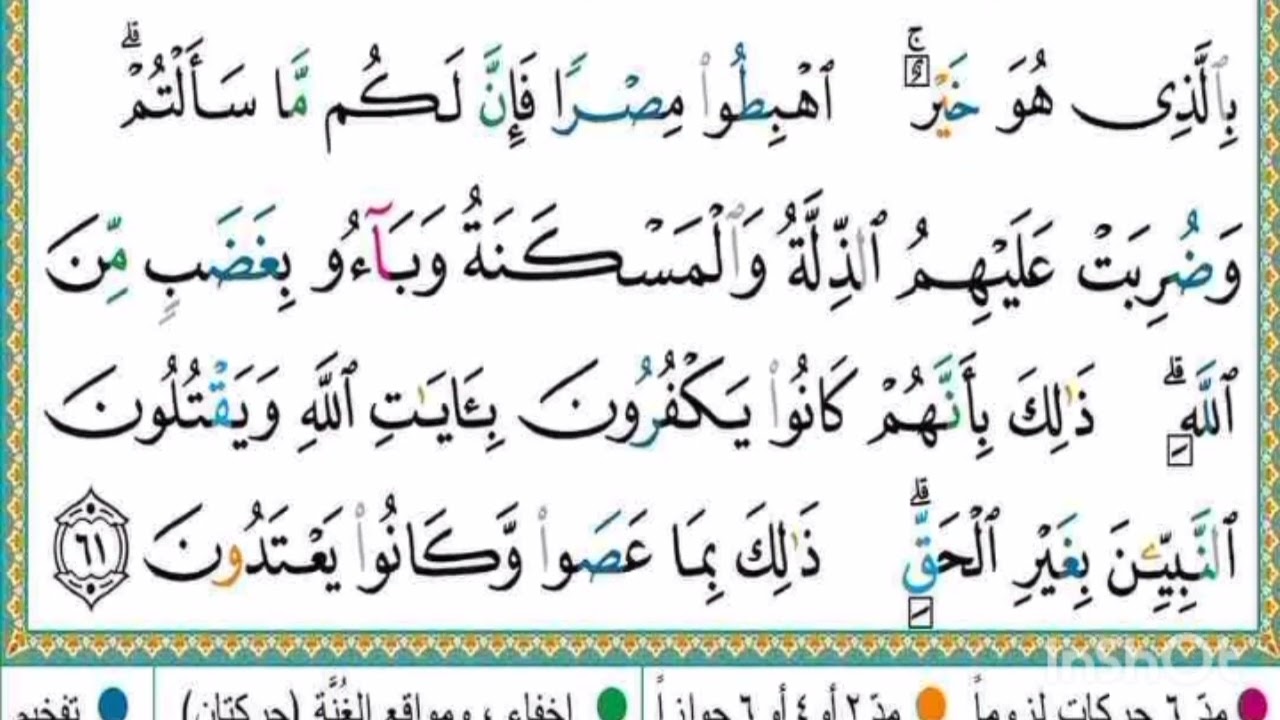 بِٱلَّذِى هُوَ خَيْرٌ ۚ ٱهْبِطُوا۟ مِصْرًا فَإِنَّ لَكُم مَّا سَأَلْتُمْ ۗ
وَضُرِبَتْ عَلَيْهِمُ ٱلذِّلَّةُ وَٱلْمَسْكَنَةُ وَبَآءُو بِغَضَبٍ مِّنَ
ٱللَّهِ ۗ ذَٰلِكَ بِأَنَّهُمْ كَانُوا۟ يَكْفُرُونَ بِـَٔايَـٰتِ ٱللَّهِ وَيَقْتُلُونَ
ٱلنَّبِيِّـۧنَ بِغَيْرِ ٱلْحَقِّ ۗ ذَٰلِكَ بِمَا عَصَوا۟ وَّكَانُوا۟ يَعْتَدُونَ ٦١
مدّ ٦ حركات لزوماً مدّ ٢ أو ٤ أو ٦ جوازاً إخفاء، ومواقع الغُنَّة (حركتان) تفخيم
InShOt